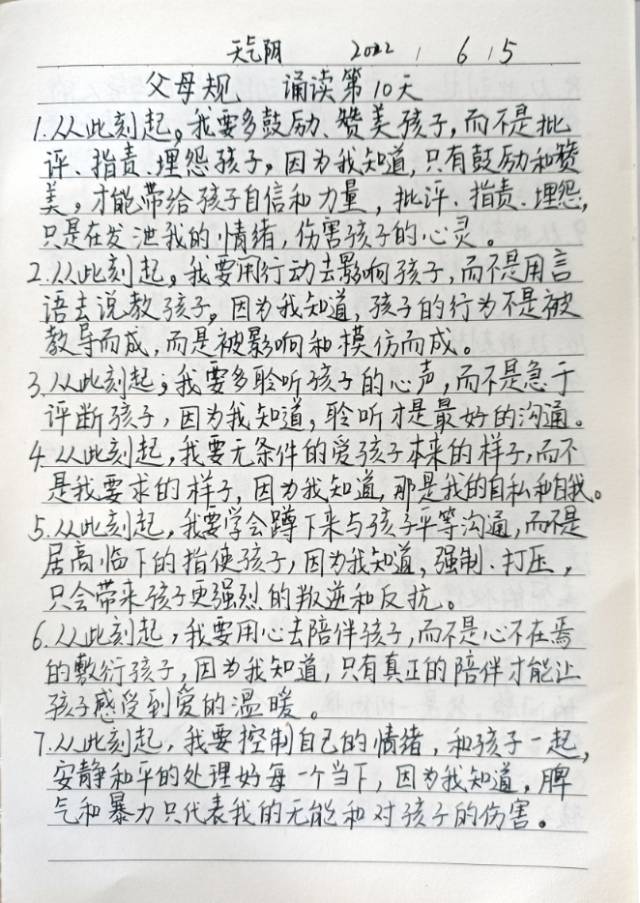 天气阴 2022 . 6 . 5
父母规、 诵读第10天
1.从此刻起。我要多鼓励、赞美孩子,而不是批
评、指责、埋怨孩子。因为我知道,只有鼓励和赞
美。才能带给孩子自信和力量,批评、指责、埋怨,
只是在发泄我的情绪,伤害孩子的心灵。
2.从此刻起。我要用行动去影响孩子,而不是用言
语去说教孩子。因为我知道,孩子的行为不是被
教导而成,而是被影响和模仿而成。
3.从此刻起;我要多聆听孩子的心声,而不是急于
评断孩子,因为我知道,聆听才是最好的沟通。
4.从此刻起,我要无条件的爱孩子本来的样子,而不
是我要求的样子,因为我知道,那是我的自私和自我。
5.从此刻起,我要学会蹲下来与孩子平等沟通,而不是
居高临下的指使孩子,因为我知道,强制、打压,
只会带来孩子更强烈的叛逆和反抗。
6.从此刻起,我要用心去陪伴孩子,而不是心不在焉
的敷衍孩子,因为我知道,只有真正的陪伴才能让
孩子感受到爱的温暖。
7.从此刻起,我要控制自己的情绪,和孩子一起,
安静和平的处理好每一个当下,因为我知道,脾
气和暴力只代表我的无能和对孩子的伤害。